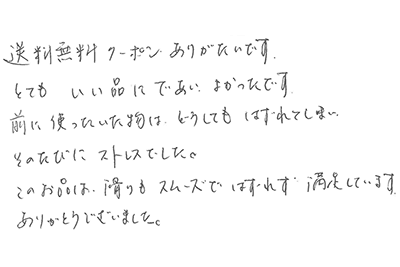 送料無料クーポンありがたいです。
とても いい品にであい よかったです。
前に使ったいた物は、どうしてもはずれてしまい
そのたびにストレスでした。
このお品は、滑りもスムーズではずれず満足しています。
ありがとうございました。